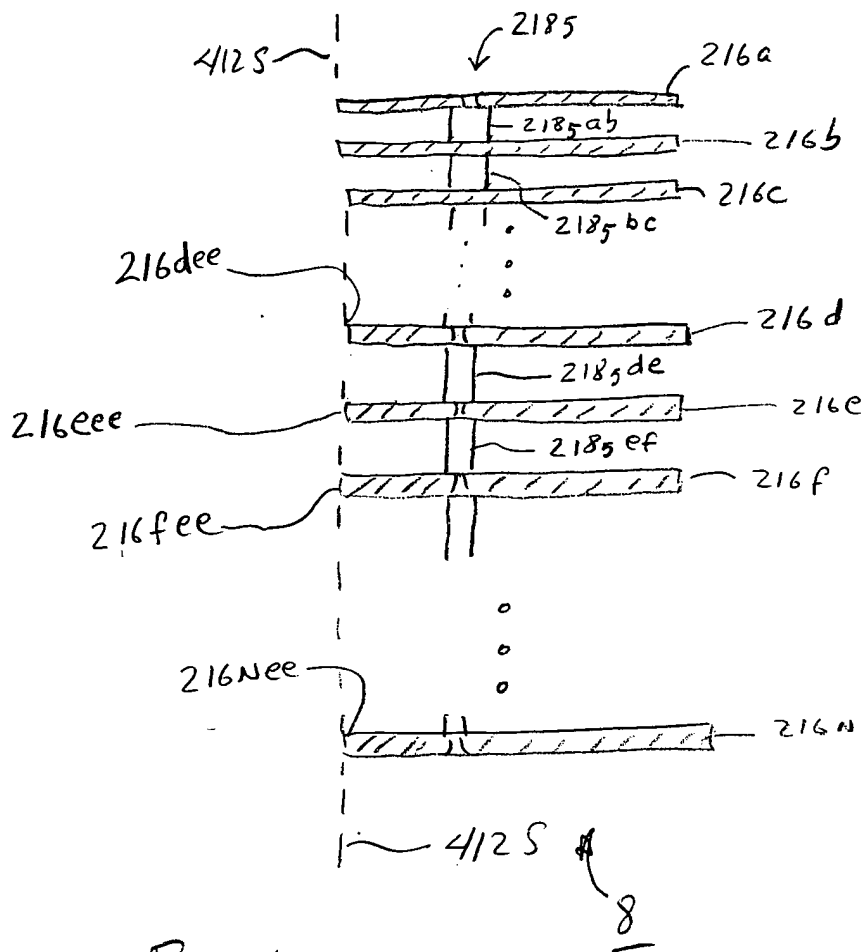 2185
412S
216a
2185ab
216b
216c
2185bc
216dee
216d
2185de
216eee
216e
2185ef
216f
216fee
216Nee
216N
412S
8